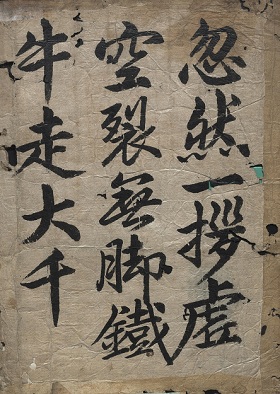 忽然一拶虛
空裂無脚鐵
牛走大千